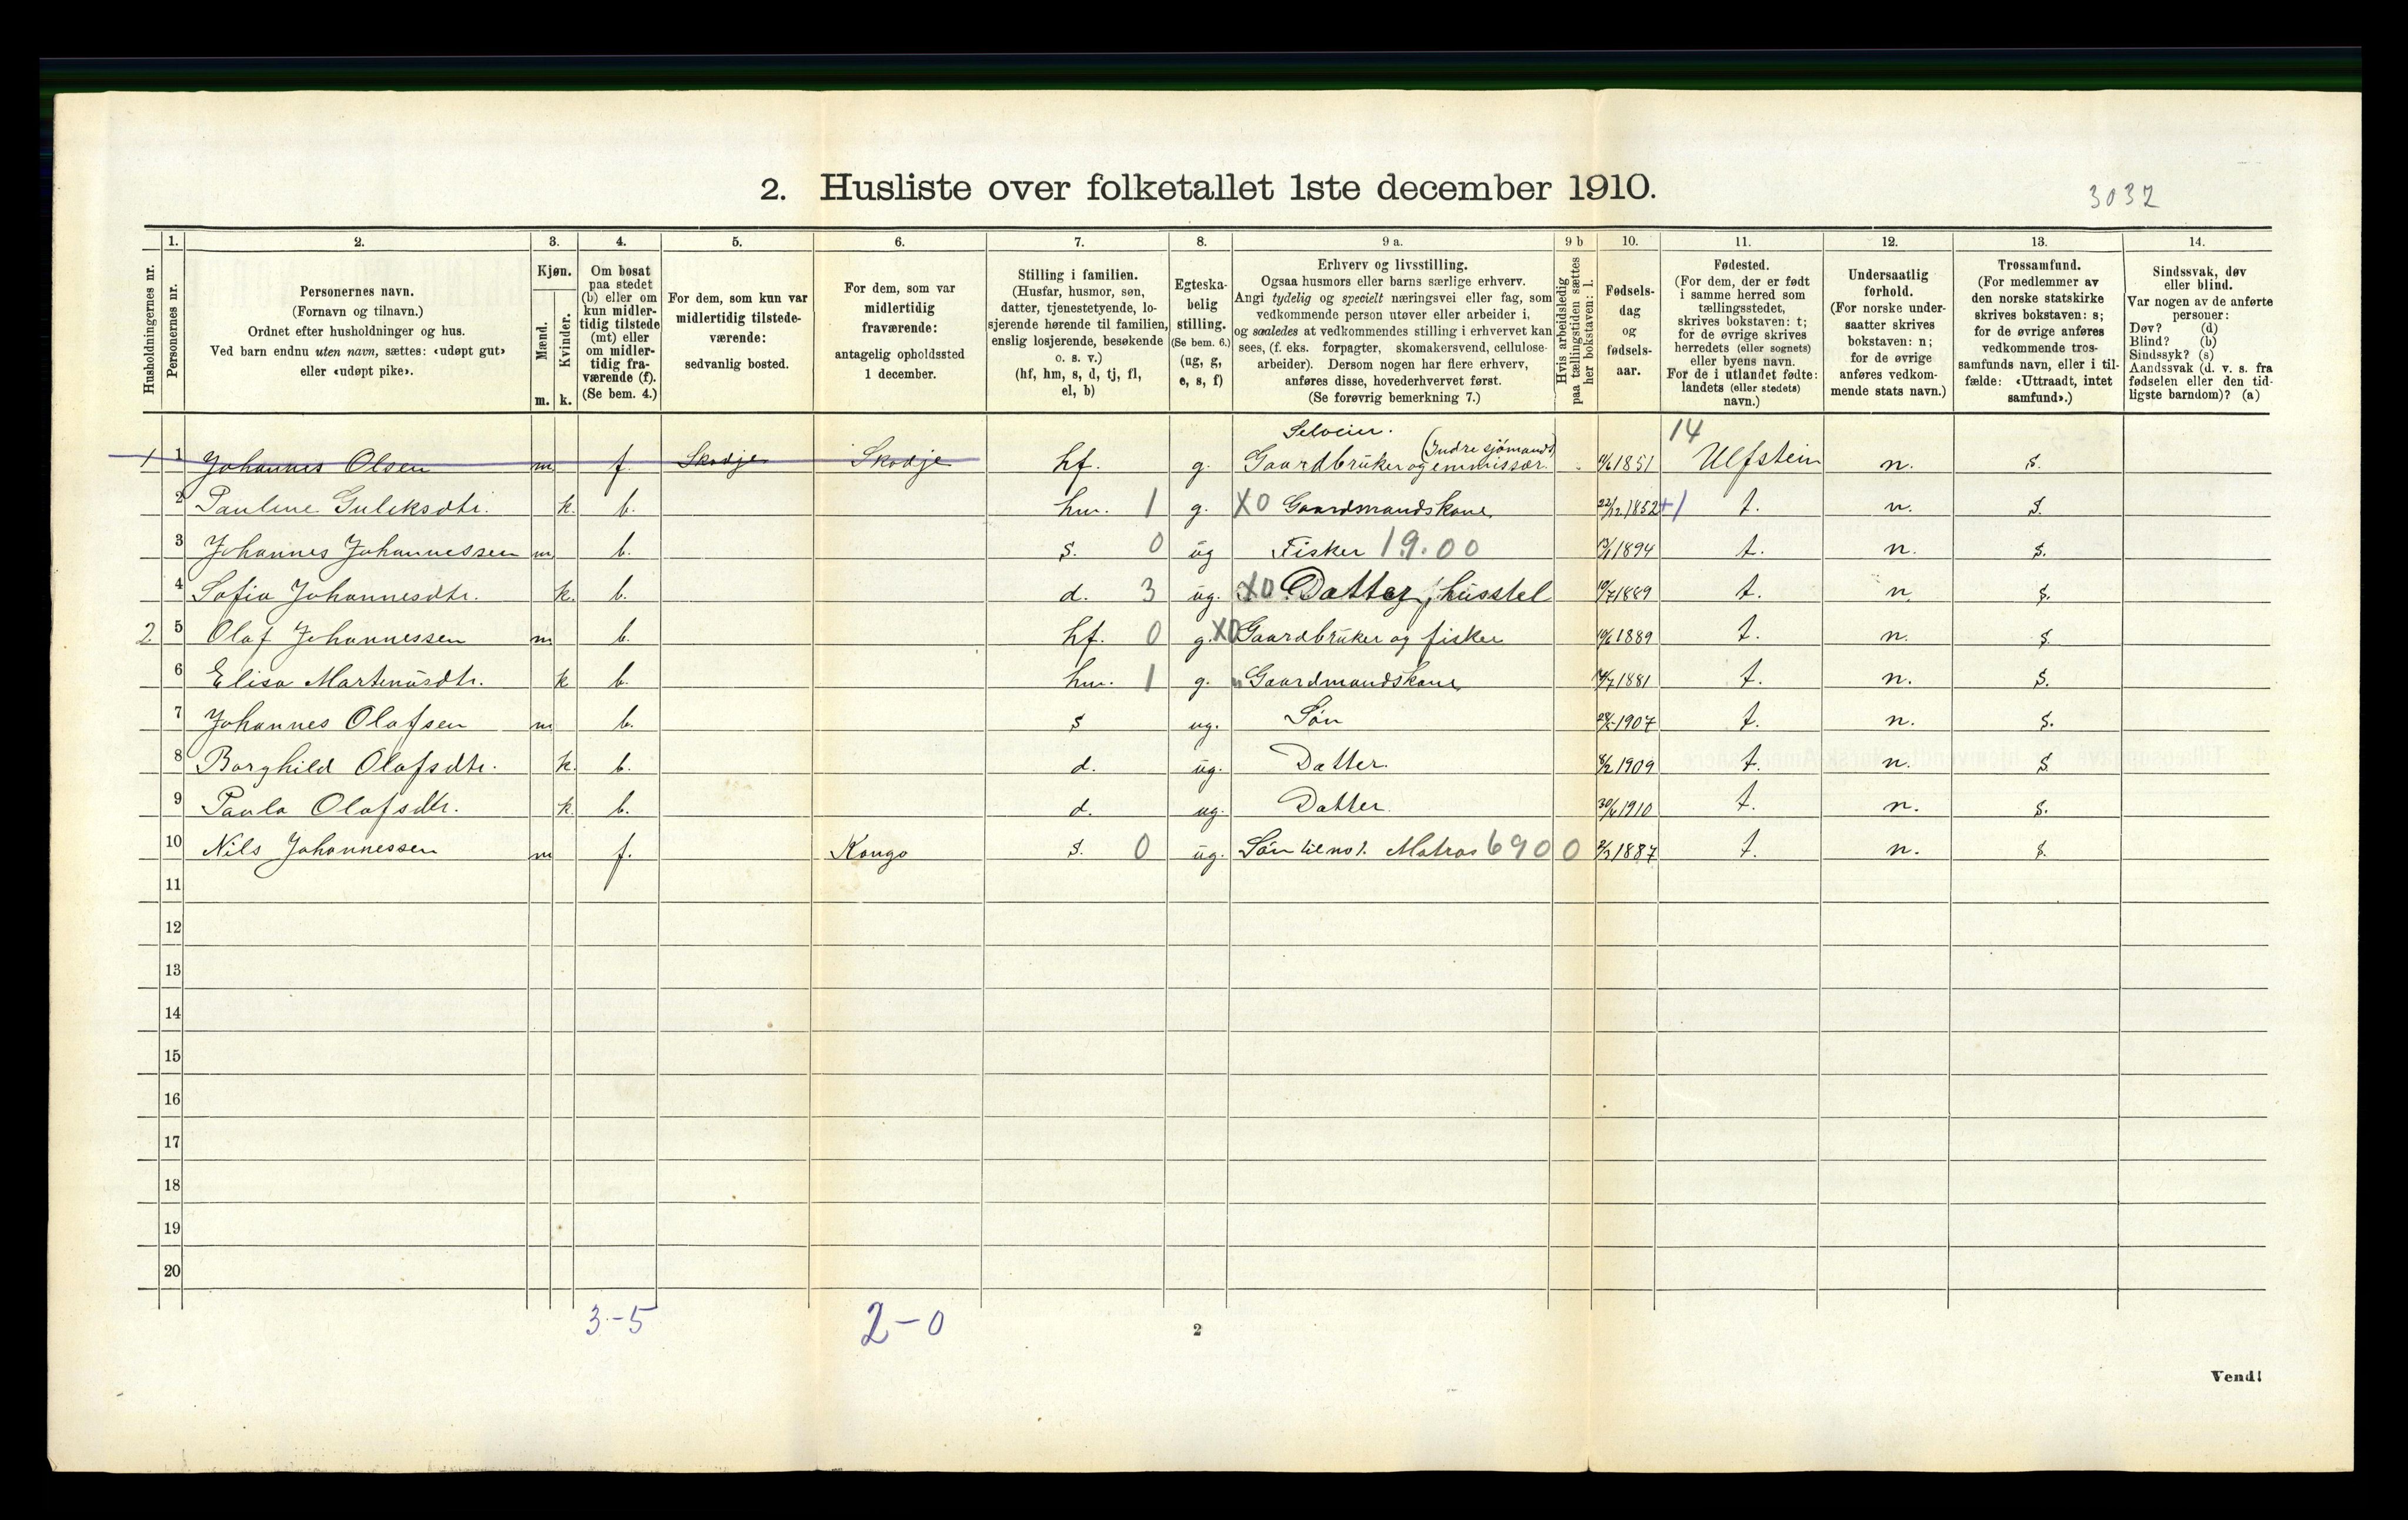 2. Husliste over folketallet 1ste december 1910.
3032
Husholdningernes nr.
1. Personernes nr.
2. Personernes navn.
(Fornavn og tilnavn.)
Ordnet efter husholdninger og hus.
Ved barn endnu uten navn, sættes: «udøpt gut»
eller «udøpt pike».
3. Kjøn.
Mænd. m.
Kvinder. k.
4. Om bosat
paa stedet
(b) eller om
kun midler-
tidig tilstede
(mt) eller
om midler-
tidig fra-
værende (f).
(Se bem. 4.)
5. For dem, som kun var
midlertidig tilstede-
værende:
sedvanlig bosted.
6. For dem, som var
midlertidig
fraværende:
antagelig opholdssted
1 december.
7. Stilling i familien.
(Husfar, husmor, søn,
datter, tjenestetyende, lo-
sjerende hørende til familien,
enslig losjerende, besøkende
o. s. v.)
(hf, hm, s, d, tj, fl,
el, b)
8. Egteska-
belig
stilling.
(Se bem. 6.)
(ug, g,
e, s, f)
9 a. Erhverv og livsstilling.
Ogsaa husmors eller barns særlige erhverv.
Angi tydelig og specielt næringsvei eller fag, som
vedkommende person utøver eller arbeider i,
og saaledes at vedkommendes stilling i erhvervet kan
sees, (f. eks. forpagter, skomakersvend, cellulose-
arbeider). Dersom nogen har flere erhverv,
anføres disse, hovederhvervet først.
(Se forøvrig bemerkning 7.)
9 b Hvis arbeidsledig
paa tællingstiden sættes
her bokstaven: l.
10. Fødsels-
dag
og
fødsels-
aar.
11. Fødested.
(For dem, der er født
i samme herred som
tællingsstedet,
skrives bokstaven: t;
for de øvrige skrives
herredets (eller sognets)
eller byens navn.
For de i utlandet fødte:
landets (eller stedets)
navn.)
12. Undersaatlig
forhold.
(For norske under-
saatter skrives
bokstaven: n;
for de øvrige
anføres vedkom-
mende stats navn.)
13. Trossamfund.
(For medlemmer av
den norske statskirke
skrives bokstaven: s;
for de øvrige anføres
vedkommende tros-
samfunds navn, eller i til-
fælde: «Uttraadt, intet
samfund».)
14. Sindssvak, døv
eller blind.
Var nogen av de anførte
personer:
Døv? (d)
Blind? (b)
Sindssyk? (s)
Aandssvak (d. v. s. fra
fødselen eller den tid-
ligste barndom)? (a)
Selveier. (Indre sjømands) 14
1 1 Johannes Olsen m f. Skodje Skodje hf. g. Gaardbruker og emmissær. 1851 Ulfstein n. s.
2 Pauline Guleksdtr. k. b. hm. 1 g. X0 Gaardmandskone 22/12 1852 +1 t. n. s.
3 Johannes Johannessen m b. s. 0 ug Fisker 19.00 1894 t. n. s.
4 Sofia Johannesdtr. k. b. d. 3 ug. X0 Datter, husstel 10/7 1889 t. n. s.
2 5 Olaf Johannessen m b. hf. 0 g. X0 Gaardbruker og fisker 1889 t. n. s.
6 Elisa Martinusdtr. k b. hm. 1 g. Gaardmandskone 1881 t. n. s.
7 Johannes Olafsen m b. s ug. Søn 1907 t. n. s.
8 Borghild Olafsdtr. k. b. d. ug. Datter. 1909 t. n. s
9 Paula Olafsdtr. k. b. d. ug. Datter. 1910 t. n. s.
10 Nils Johannessen m f. Kongo s. 0 ug. Søn til no 1. Matros 690 0 1887 t. n. s.
11
12
13
14
15
16
17
18
19
20
3-5
2-0
2
Vend!